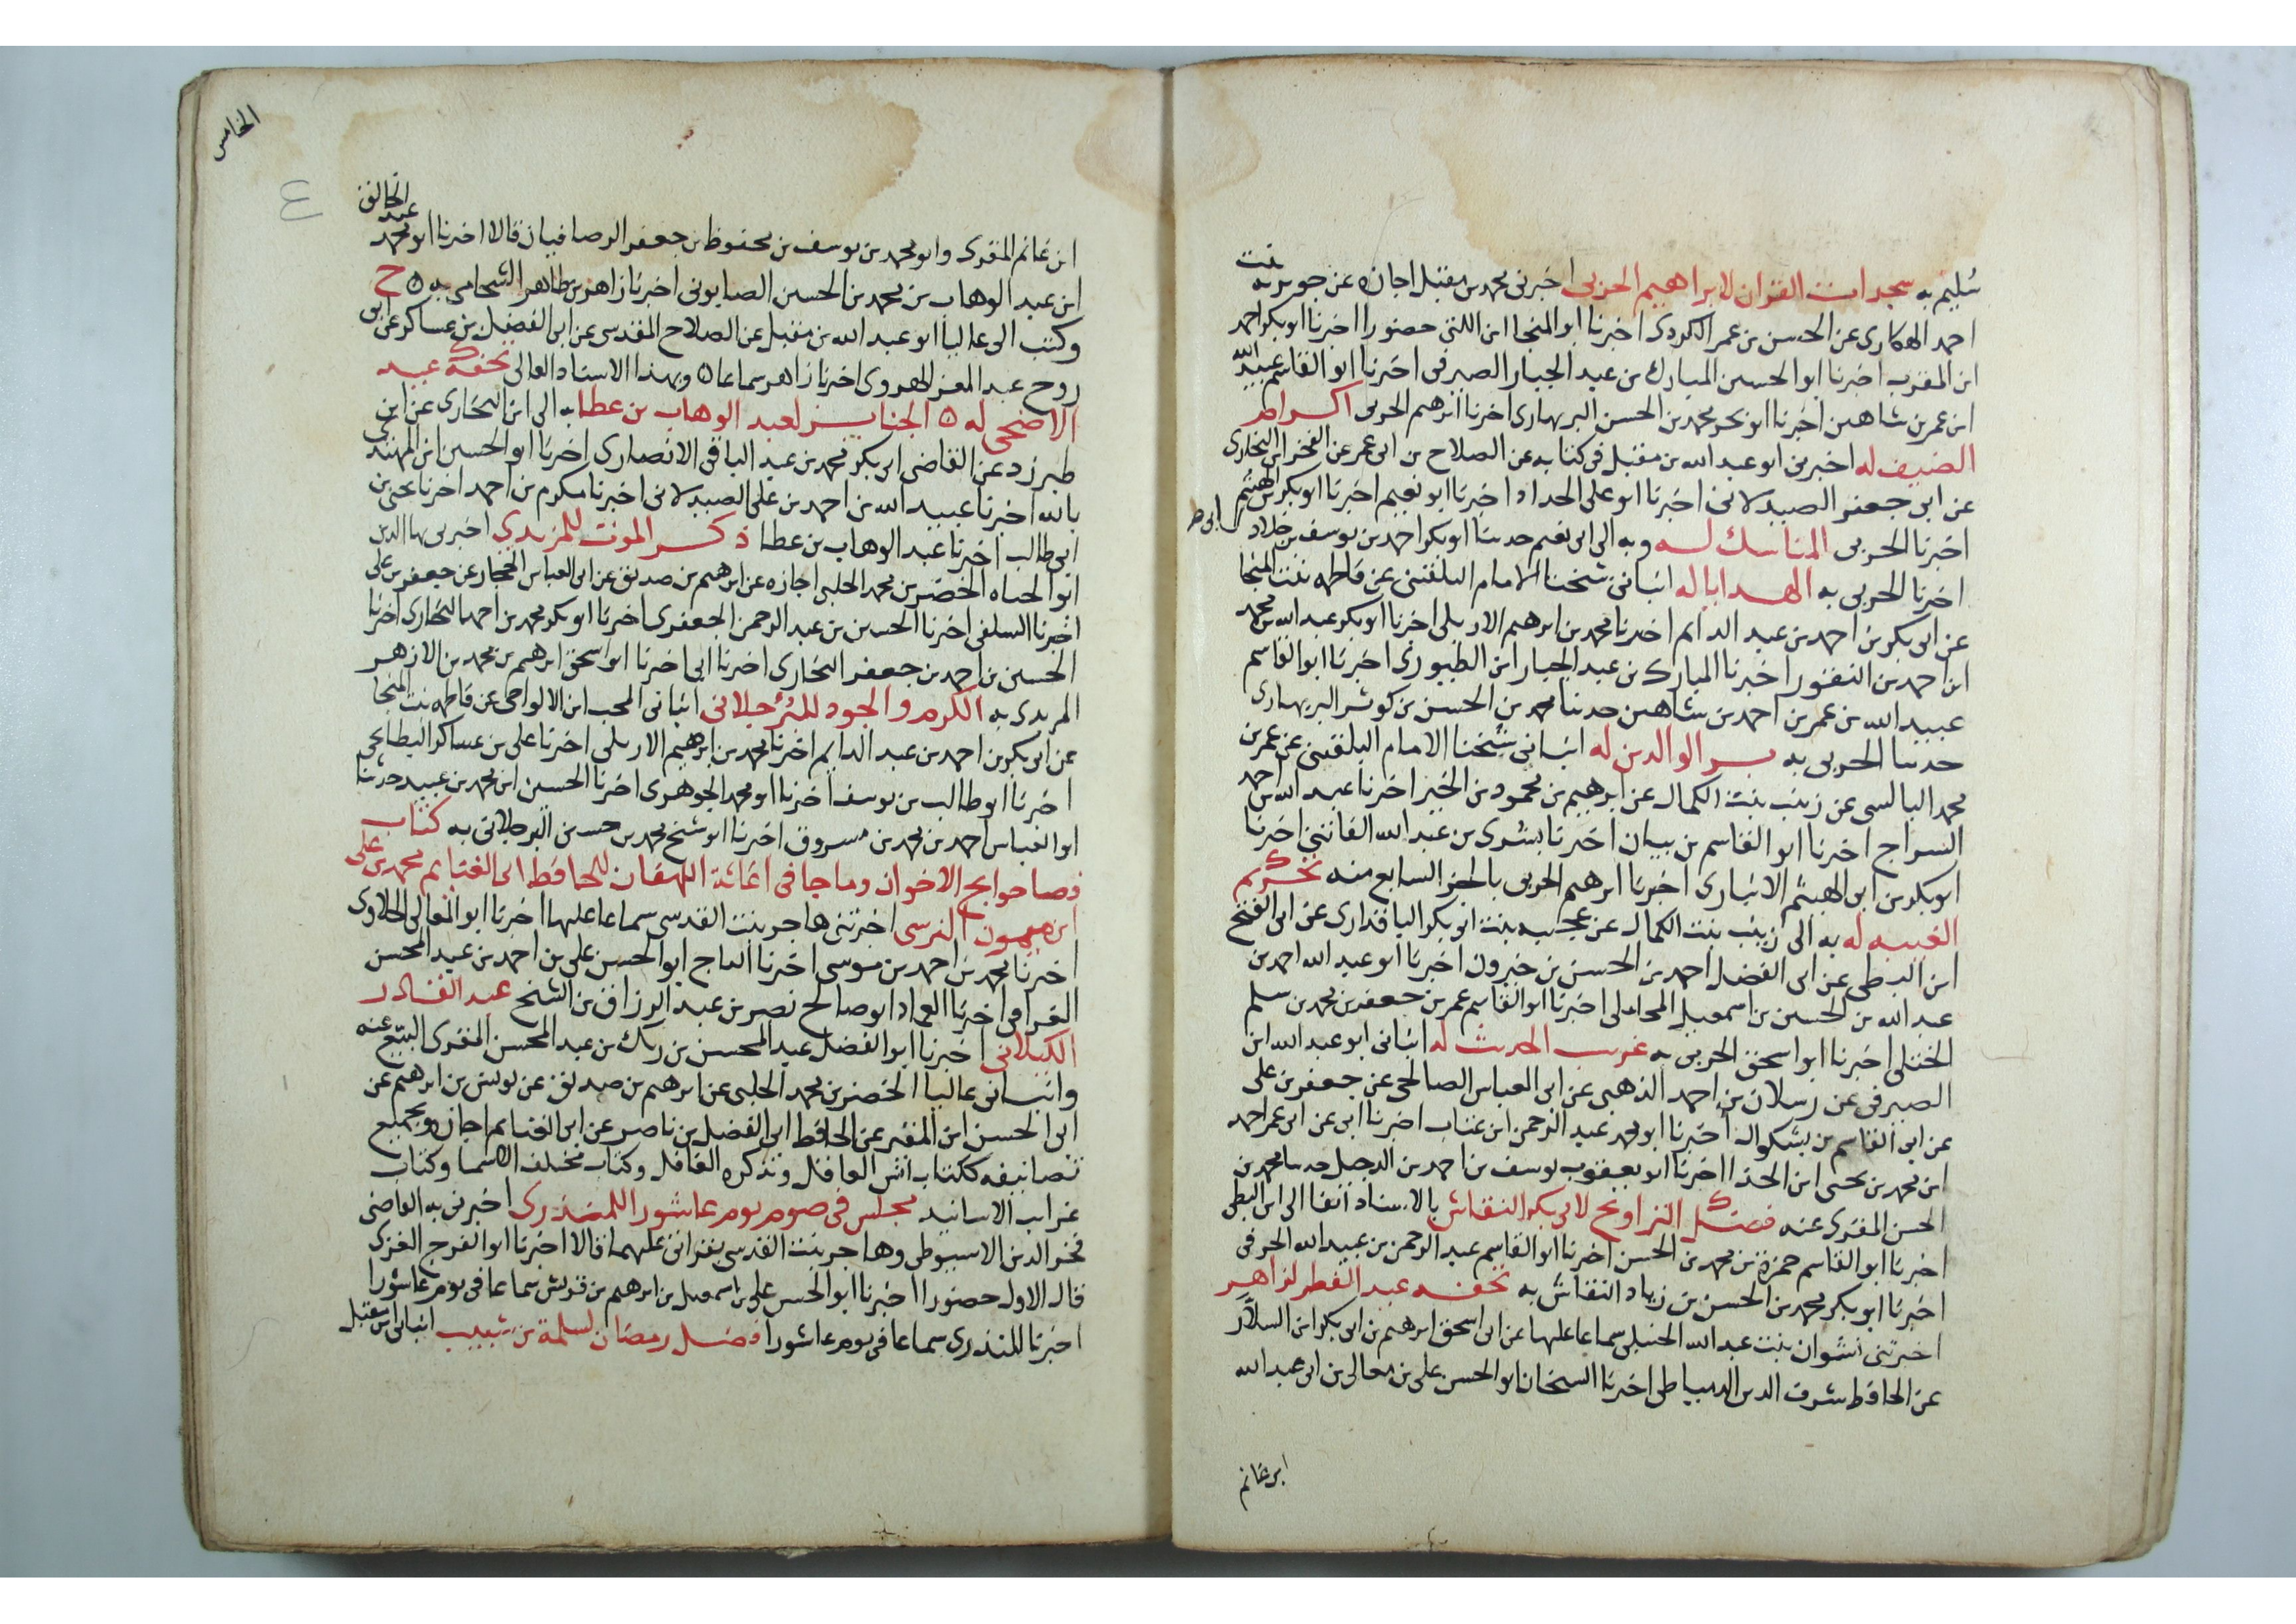 سليم به سجدات القران لابراهيم الحربى اخبرنى محمد بن مقبل اجازة عن جويريه بنت
احمد الهكارى عن الحسن بن عمر الكردى اخبرنا ابو المنجا ابن اللتى حضورا اخبرنا ابو بكر احمد
ابن المقرب اخبرنا ابو الحسين المبارك بن عبد الجبار الصيرفى اخبرنا ابو القاسم عبيد الله
ابن عمر بن شاهين اخبرنا ابو بحر محمد بن الحسن البربهارى اخبرنا ابرهيم الحربى اكرام
الضيف له اخبرنى ابو عبد الله بن مقبل فى كتابه عن الصلاح بن ابى عمر عن الفخر ابن البخارى
عن ابى جعفر الصيدلانى اخبرنا ابو على الحداد اخبرنا ابو نعيم اخبرنا ابو بكر بن الهيثم
اخبرنا الحربى المناسك له وبه الى ابى نعيم حدثنا ابو بكر احمد بن يوسف بن خلاد
اخبرنا الحربى به الهدايا له انبانى شيخنا الامام البلقينى عن فاطمه بنت المنجا
عن ابى بكر بن احمد بن عبد الدايم اخبرنا محمد بن ابرهيم الاربلى اخبرنا ابو بكر عبد الله بن محمد
ابن احمد بن النقور اخبرنا المبارك بن عبد الجبار ابن الطيورى اخبرنا ابو القاسم
عبيد الله بن عمر بن احمد بن شاهين حدثنا محمد بن الحسن بن كوثر البربهارى
حدثنا الحربى به بر الوالدين له انبانى شيخنا الامام البلقينى عن عمر بن
محمد البالسى عن زينب بنت الكمال عن ابرهيم بن محمود بن الخير اخبرنا عبد الله بن احمد
السراج اخبرنا ابو القاسم بن بيان اخبرنا بشرى بن عبد الله الفاتنى اخبرنا
ابو بكر بن ابى الهيثم الانبارى اخبرنا ابرهيم الحربى بالجز السابع منه تحريم
الغيبه له به الى زينب بنت الكمال عن عجيبه بنت ابى بكر الباقدارى عن ابى الفتح
ابن البطى عن ابى الفضل احمد بن الحسن بن خيرون اخبرنا ابو عبد الله احمد بن
عبد الله بن الحسين بن اسمعيل المحاملى اخبرنا ابو القاسم عمر بن جعفر بن محمد بن سلم
الختلى اخبرنا ابو اسحق الحربى به غريب الحديث له انبانى ابو عبد الله ابن
الصيرفى عن رسلان بن احمد الذهبى عن ابى العباس الصالحى عن جعفر بن على
عن ابى القاسم بن بشكوال اخبرنا ابو محمد عبد الرحمن ابن عتاب اخبرنا ابى عن ابى عمر احمد
ابن محمد بن يحيى ابن الحذا اخبرنا ابو يعقوب يوسف بن احمد بن الدخيل حدثنا محمد بن
الحسن المقرى عنه فضل التراويح لابى بكر النقاش بالاسناد انفا الى ابن البطى
اخبرنا ابو القاسم حمزة بن محمد بن الحسن اخبرنا ابو القاسم عبد الرحمن بن عبيد الله الحرفى
اخبرنا ابو بكر محمد بن الحسن بن زياد النقاش به تحفه عيد الفطر لزاهر
اخبرتنى نشوان بنت عبد الله الحنبلى سماعا عليها عن ابى اسحق ابرهيم بن ابى بكر ابن السلار
عن الحافظ شرف الدين الدمياطى اخبرنا الشيخان ابو الحسن على بن معالى بن ابى عبد الله
ابن غانم
الخامس
٤
ابن غانم المقرى وابو محمد بن يوسف بن محفوظ بن جعفر الرصافيان قالا اخبرنا ابو محمد عبد الخالق
ابن عبد الوهاب بن محمد بن الحسين الصابونى اخبرنا زاهر بن طاهر الشحامى به ه ح
وكتب الى عاليا ابو عبد الله بن مقبل عن الصلاح المقدسى عن ابى الفضل بن عساكر عن ابى
روح عبد المعز الهروى اخبرنا زاهر سماعا ه وبهذا الاسناد العالى تحفة عيد
الاضحى له ه الجنايز لعبد الوهاب بن عطا به الى ابن البخارى عن ابن
طبرزد عن القاضى ابى بكر محمد بن عبد الباقى الانصارى اخبرنا ابو الحسين ابن المهتدى
بالله اخبرنا عبيد الله بن احمد بن على الصيدلانى اخبرنا مكرم بن احمد اخبرنا يحيى بن
ابى طالب اخبرنا عبد الوهاب بن عطا ذكر الموت للمزيدى اخبرنى بها الدين
ابو الحياه الخضر بن محمد الحلبى اجازه عن ابرهيم بن صديق عن ابى العباس الحجار عن جعفر بن على
اخبرنا السلفى اخبرنا الحسين بن عبد الرحمن الجعفرى اخبرنا ابو بكر محمد بن احمد البخارى اخبرنا
الحسين بن احمد بن جعفر البخارى اخبرنا ابى اخبرنا ابو اسحق ابرهيم بن محمد بن الازهر
المزيدى به الكرم والجود للبرجلانى انبانى المحب ابن الالواحى عن فاطمه بنت المنجا
عن ابى بكر بن احمد بن عبد الدايم اخبرنا محمد بن ابرهيم الاربلى اخبرنا على بن عساكر البطايحى
اخبرنا ابو طالب بن يوسف اخبرنا ابو محمد الجوهرى اخبرنا الحسين ابن محمد بن عبيد حدثنا
ابو العباس احمد بن محمد بن مسروق اخبرنا ابو شيخ محمد بن حسين البرجلانى به كتاب
قضا حوايج الاخوان وما جا فى اغاثة اللهفان للحافظ ابى الغنايم محمد بن على
ابن ميمون النرسى اخبرتنى هاجر بنت القدسى سماعا عليها اخبرنا ابو المعالى الحلاوى
اخبرنا محمد بن احمد بن موسى اخبرنا التاج ابو الحسن على بن احمد بن عبد المحسن
الغرافى اخبرنا العماد ابو صالح نصر بن عبد الرزاق بن الشيخ عبد القادر
الكيلانى اخبرنا ابو الفضل عبد المحسن بن بن عبد المحسن المقرى عنه
وانبانى عاليا الخضر بن محمد الحلبى عن ابرهيم بن صديق عن يونس بن ابرهيم عن
ابى الحسن ابن المقير عن الحافظ ابى الفضل بن ناصر عن ابى الغنايم اجازة وبجميع
تصانيفه ككتاب انس العاقل وتذكرة الغافل وكتاب مختلف الاسما وكتاب
غرايب الاسانيد مجلس فى صوم يوم عاشورا للمنذرى اخبرنى به القاضى
فخر الدين الاسيوطى وهاجر بنت القدسى بقراتى عليهما قالا اخبرنا ابو الفرج الغزى
قال الاول حضورا اخبرنا ابو الحسن على بن اسمعيل بن ابرهيم بن قريش سماعا فى يوم عاشورا
اخبرنا المنذرى سماعا فى يوم عاشورا فضل رمضان لسلمة بن شبيب انبانى ابن مقبل